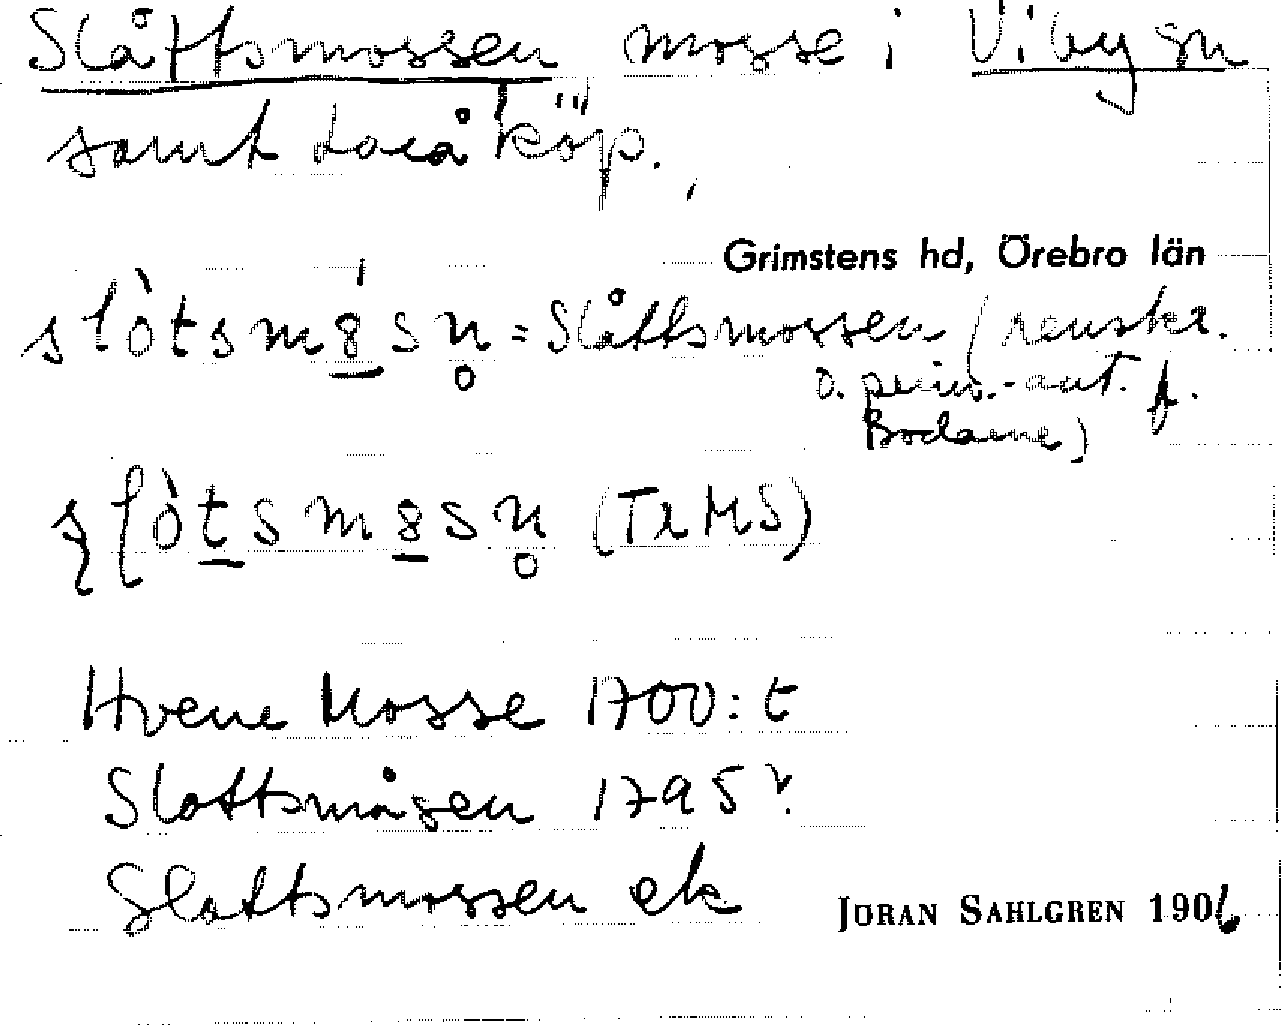 Slåttsmossen mosse i Viby sn
samt Laxå köp.
Grimstens hd, Örebro län
slòtsm8sn̥ = Slåttsmossen (renskr.
o. prim.-ant. f.
Bodarne)
slòtsm8sn̥ (TrMS)
Hvene Mosse 1700:t
Slottsmåsen 1795 v.
Slottsmossen ek
JÖRAN SAHLGREN 1906